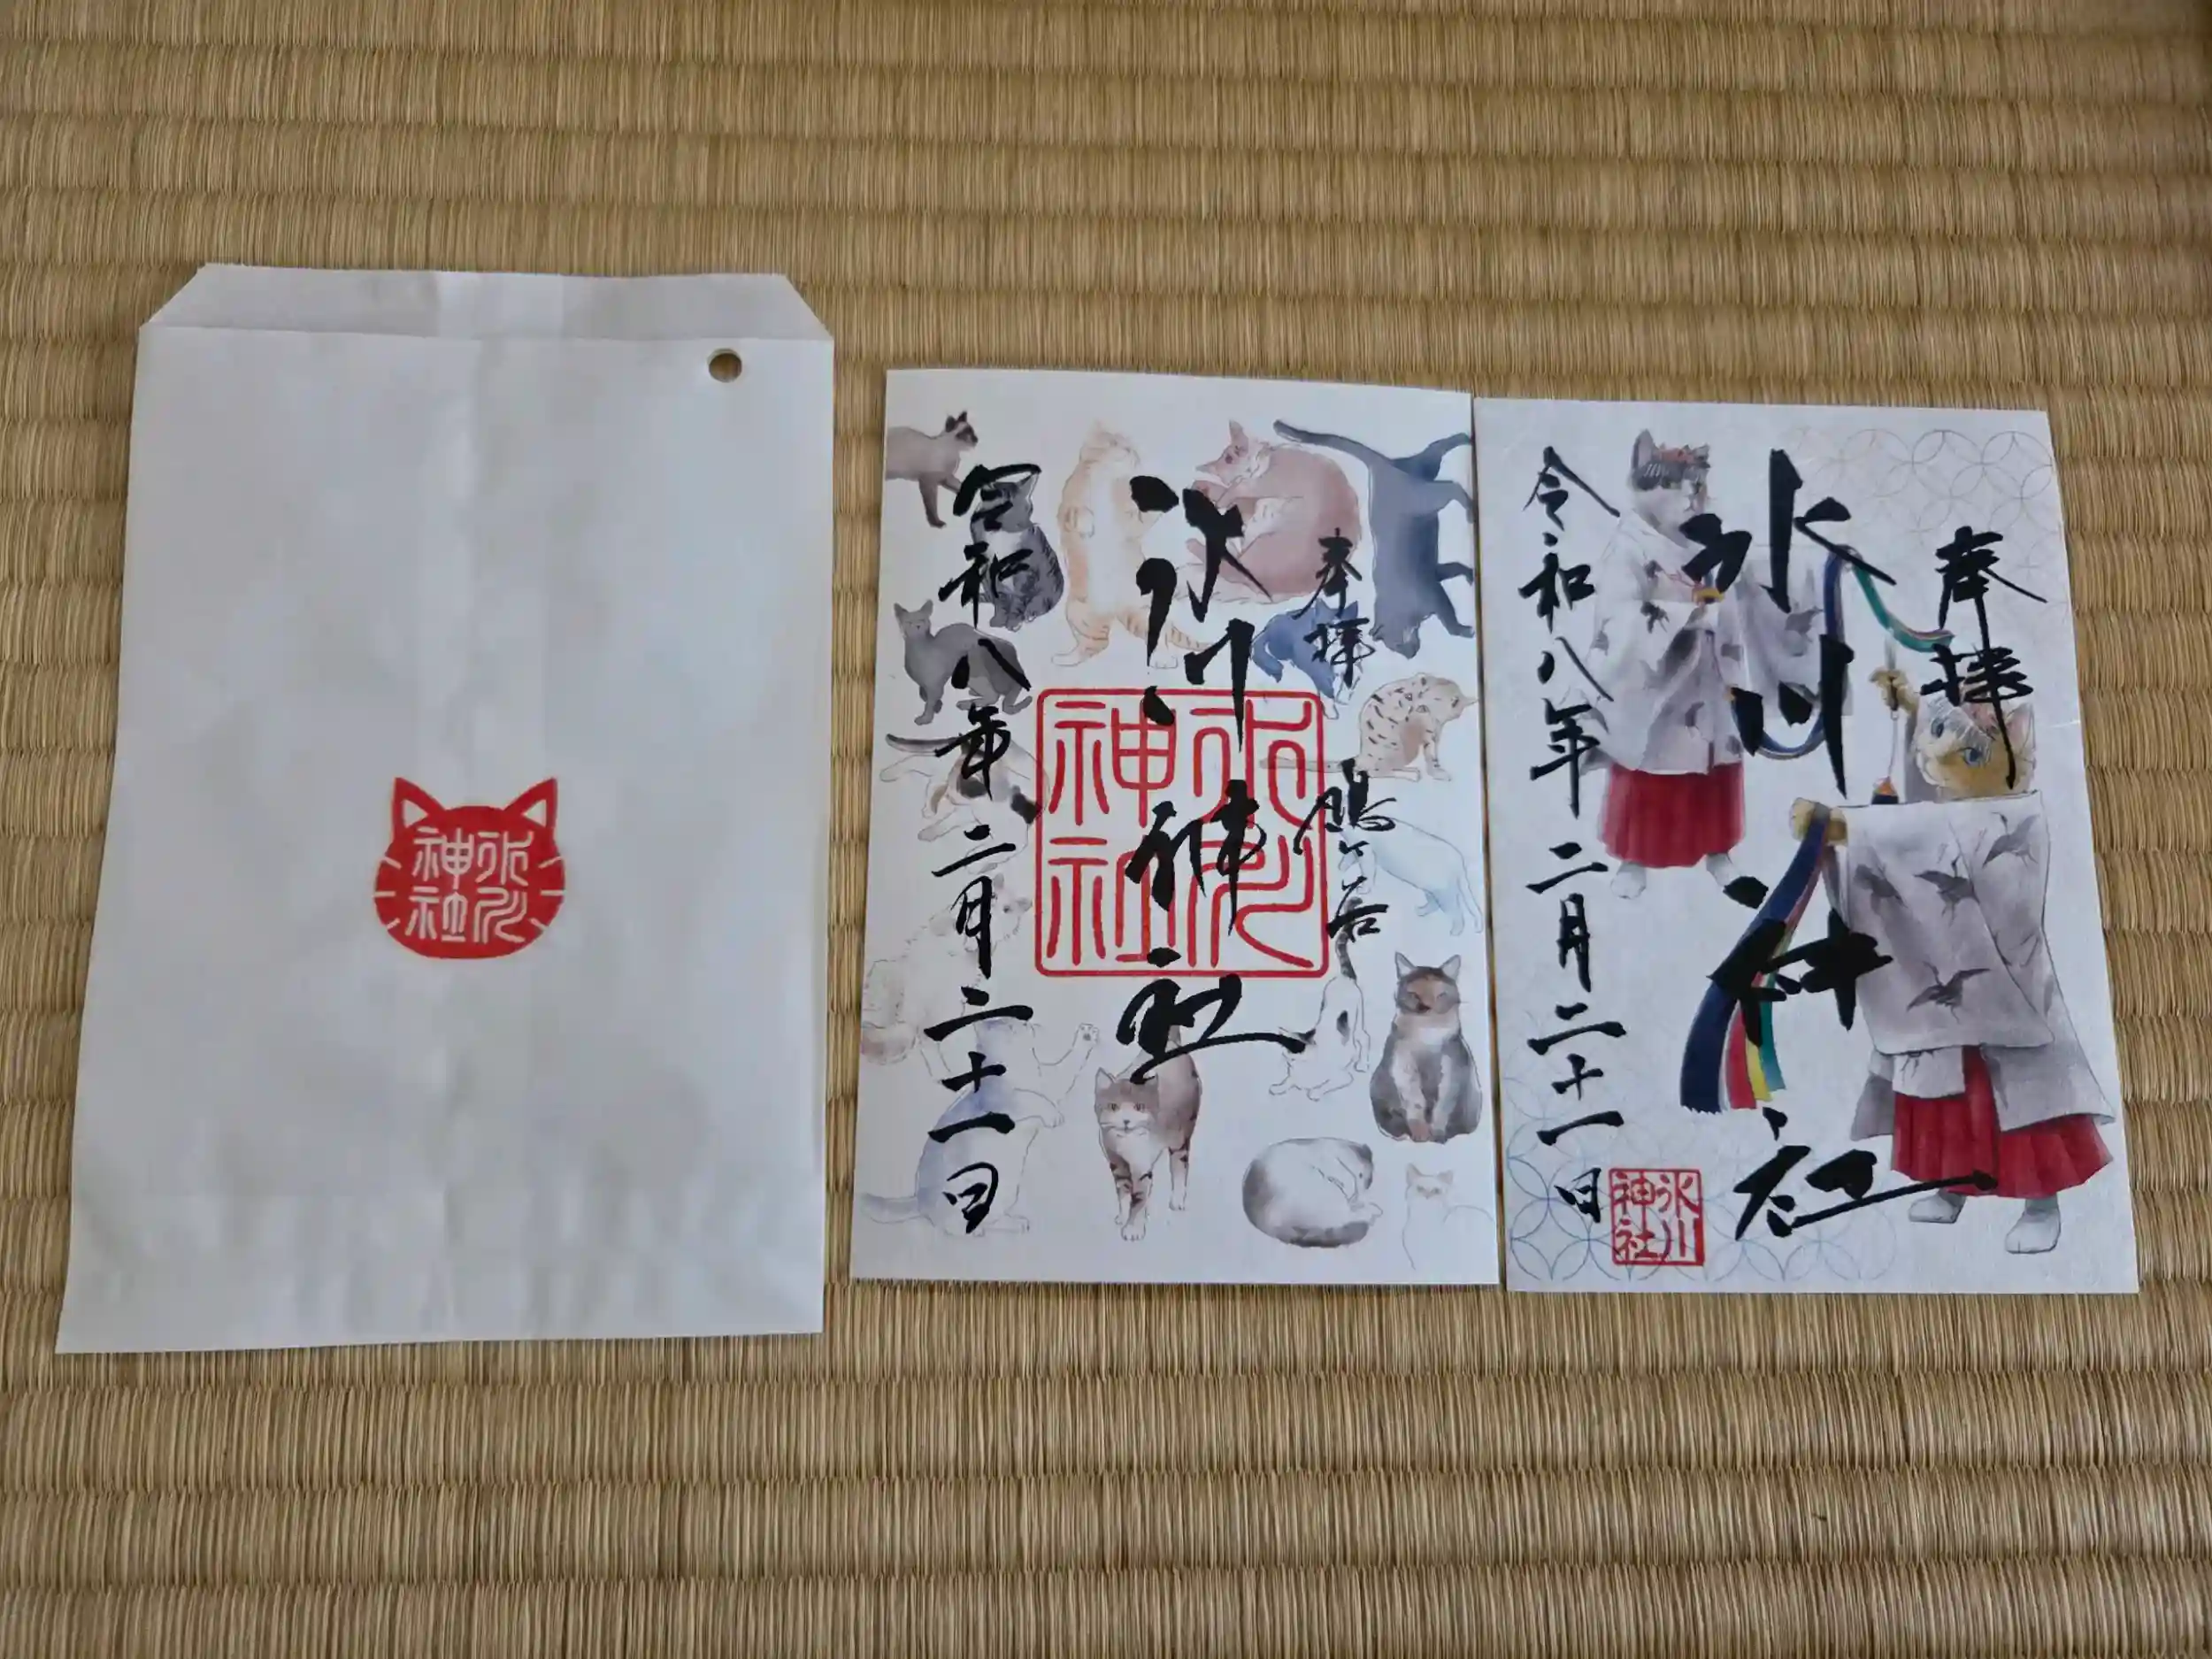 氷川
神社
奉拝 鳩ヶ谷
氷川神社
氷川
神社
令和八年二月二十一日
奉拝
氷川神社
氷川
神社
令和八年二月二十一日